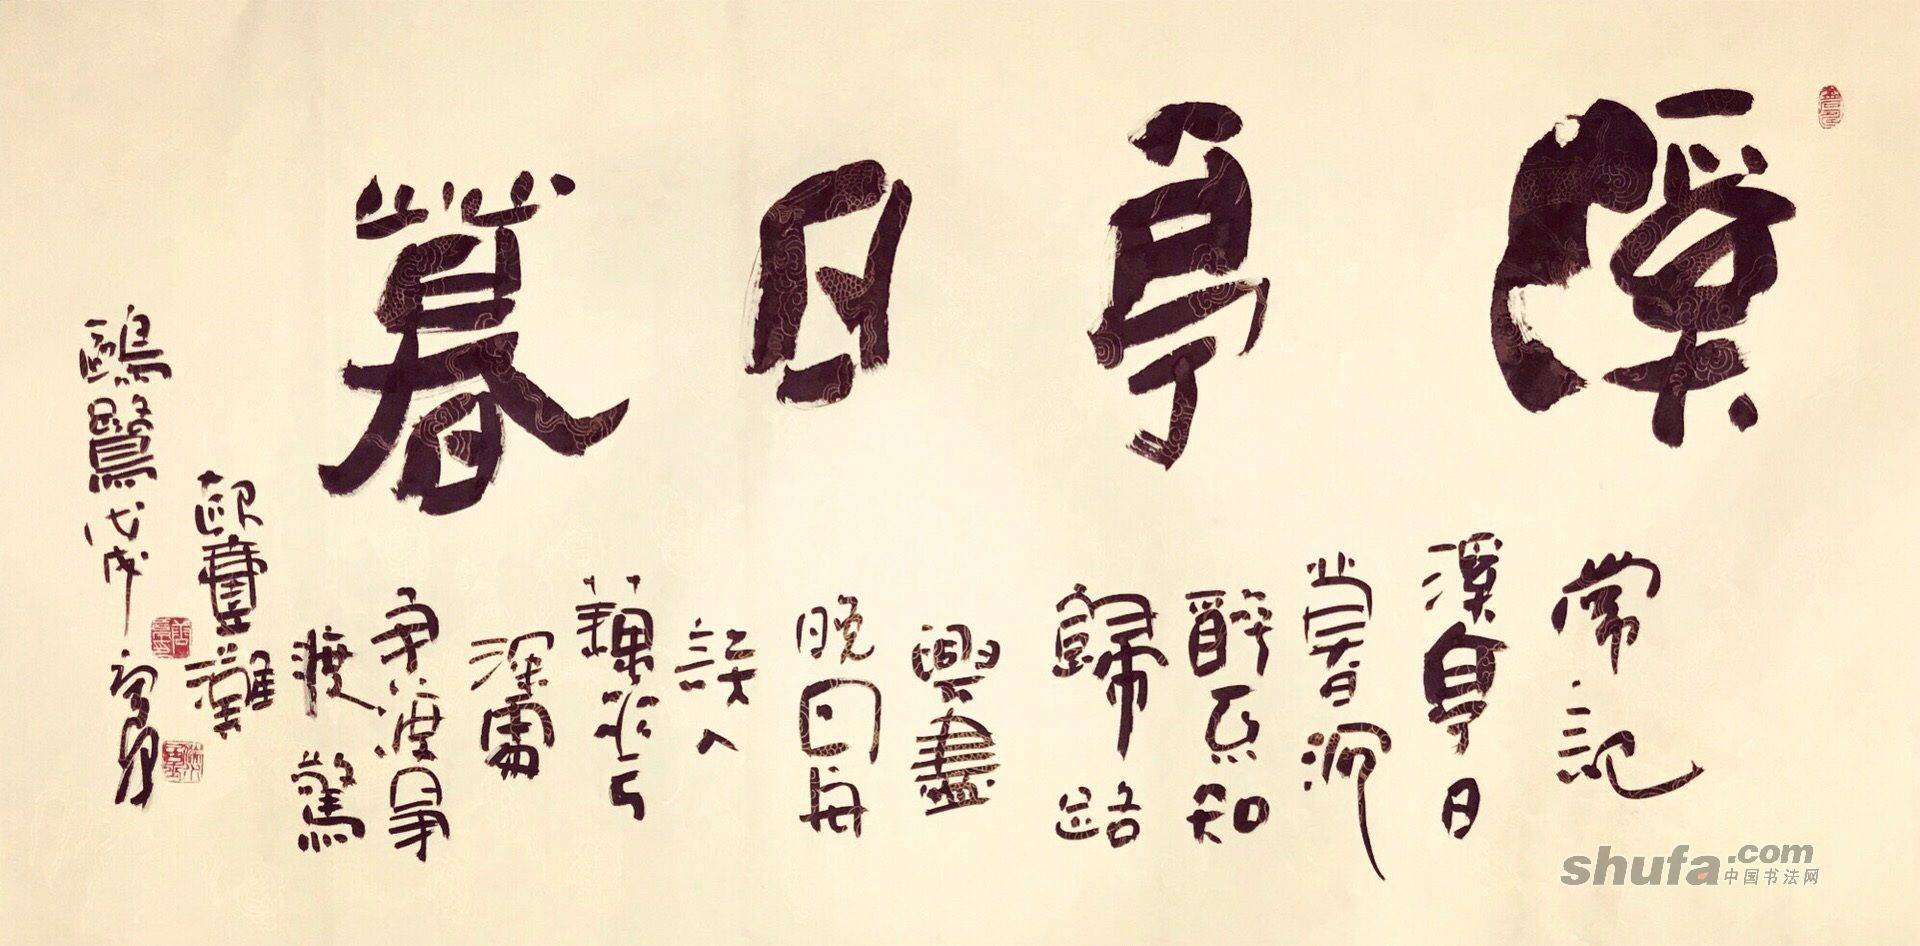 溪亭日暮
常記
溪亭日
暮沉
醉不知
歸路
興盡
晚回舟
誤入
藕花
深處
爭渡爭
渡驚
起壹灘
鷗鷺戊戌
shufa.com
中国书法网